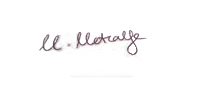 M. Metcalfe